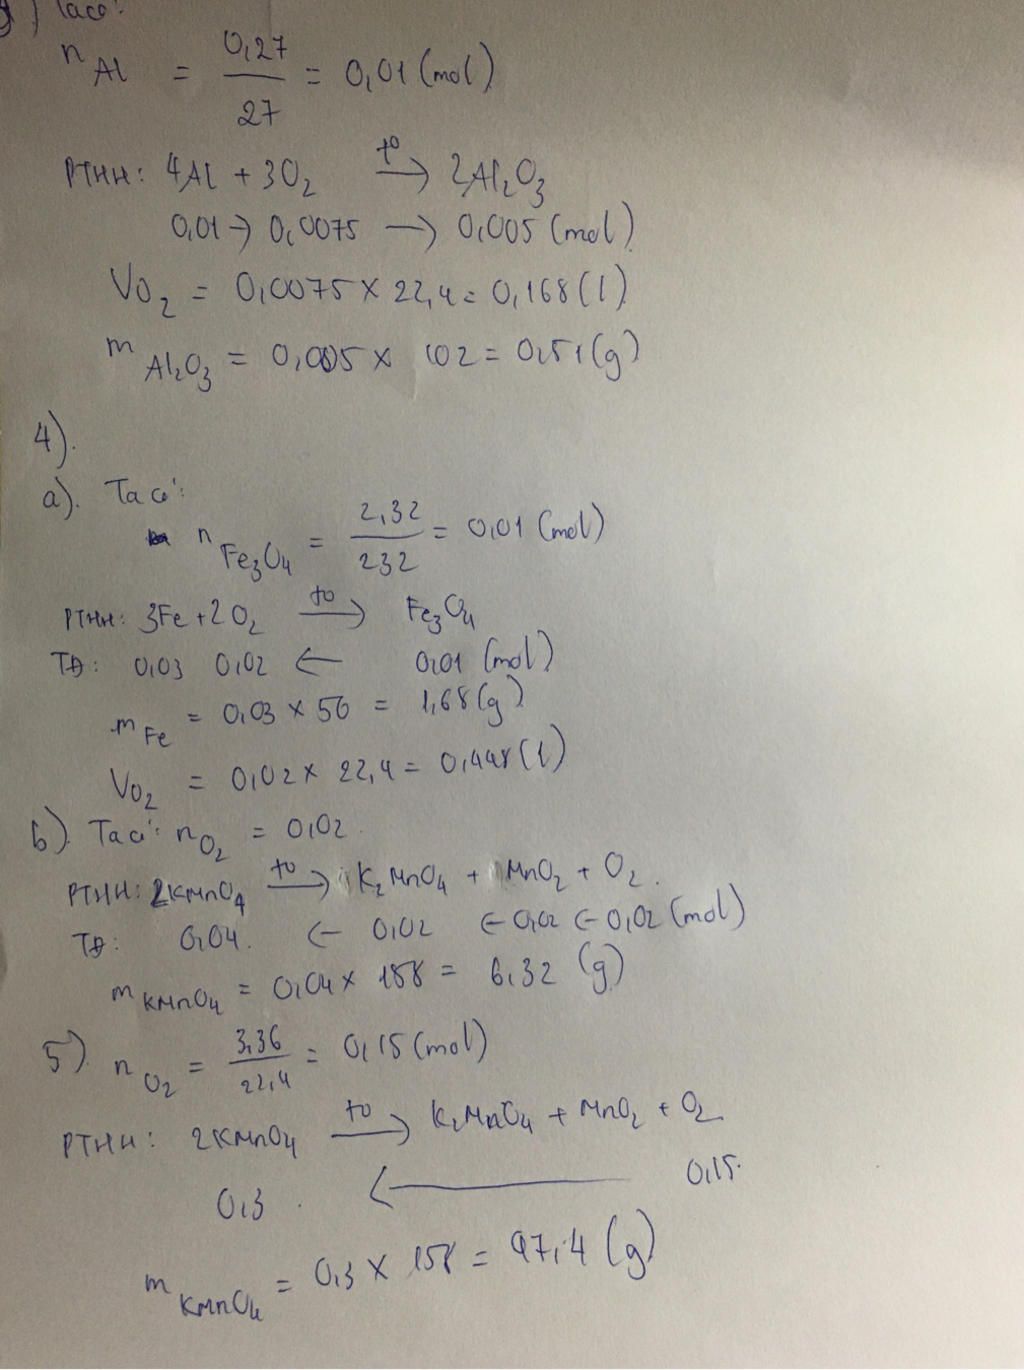 ) Ta có:
n Al = 0,27 / 27 = 0,01 (mol)
PTHH: 4Al + 3O2 t° → 2Al2O3
0,01 → 0,0075 → 0,005 (mol)
VO2 = 0,0075 x 22,4 = 0,168 (l)
m Al2O3 = 0,005 x 102 = 0,51 (g)
4).
a). Ta có:
n Fe3O4 = 2,32 / 232 = 0,01 (mol)
PTHH: 3Fe + 2O2 t° → Fe3O4
TĐ: 0,03 0,02 ← 0,01 (mol)
m Fe = 0,03 x 56 = 1,68 (g)
VO2 = 0,02 x 22,4 = 0,448 (l)
b) Ta có: nO2 = 0,02.
PTHH: 2KMnO4 t° → K2MnO4 + MnO2 + O2.
TĐ: 0,04. ← 0,02 ← 0,02 ← 0,02 (mol)
m KMnO4 = 0,04 x 158 = 6,32 (g)
5). n O2 = 3,36 / 22,4 = 0,15 (mol)
PTHH: 2KMnO4 t° → K2MnO4 + MnO2 + O2
0,3. ← 0,15.
m KMnO4 = 0,3 x 158 = 47,4 (g)